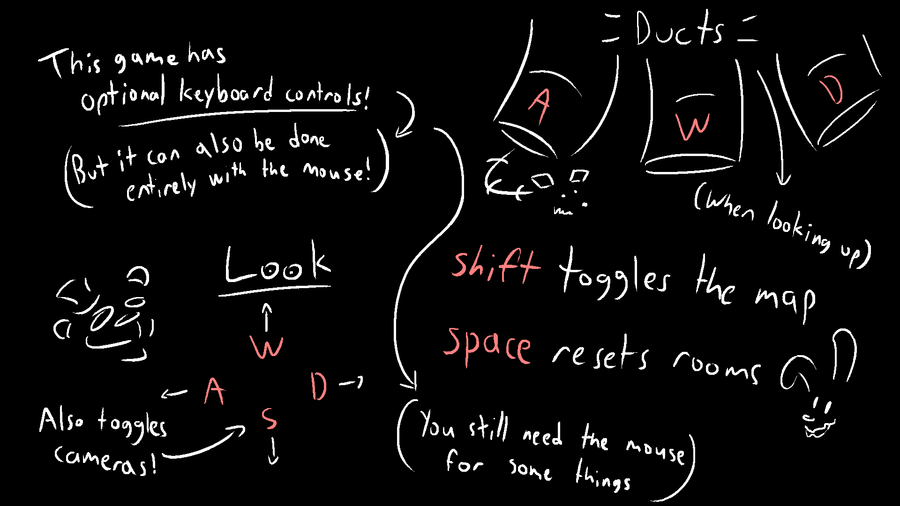 This game has
optional keyboard controls!
(But it can also be done
entirely with the mouse!)
Look
W
A
D
S
Also toggles
cameras!
= Ducts =
A
W
D
(when looking up)
shift toggles the map
space resets rooms
(You still need the mouse
for some things)